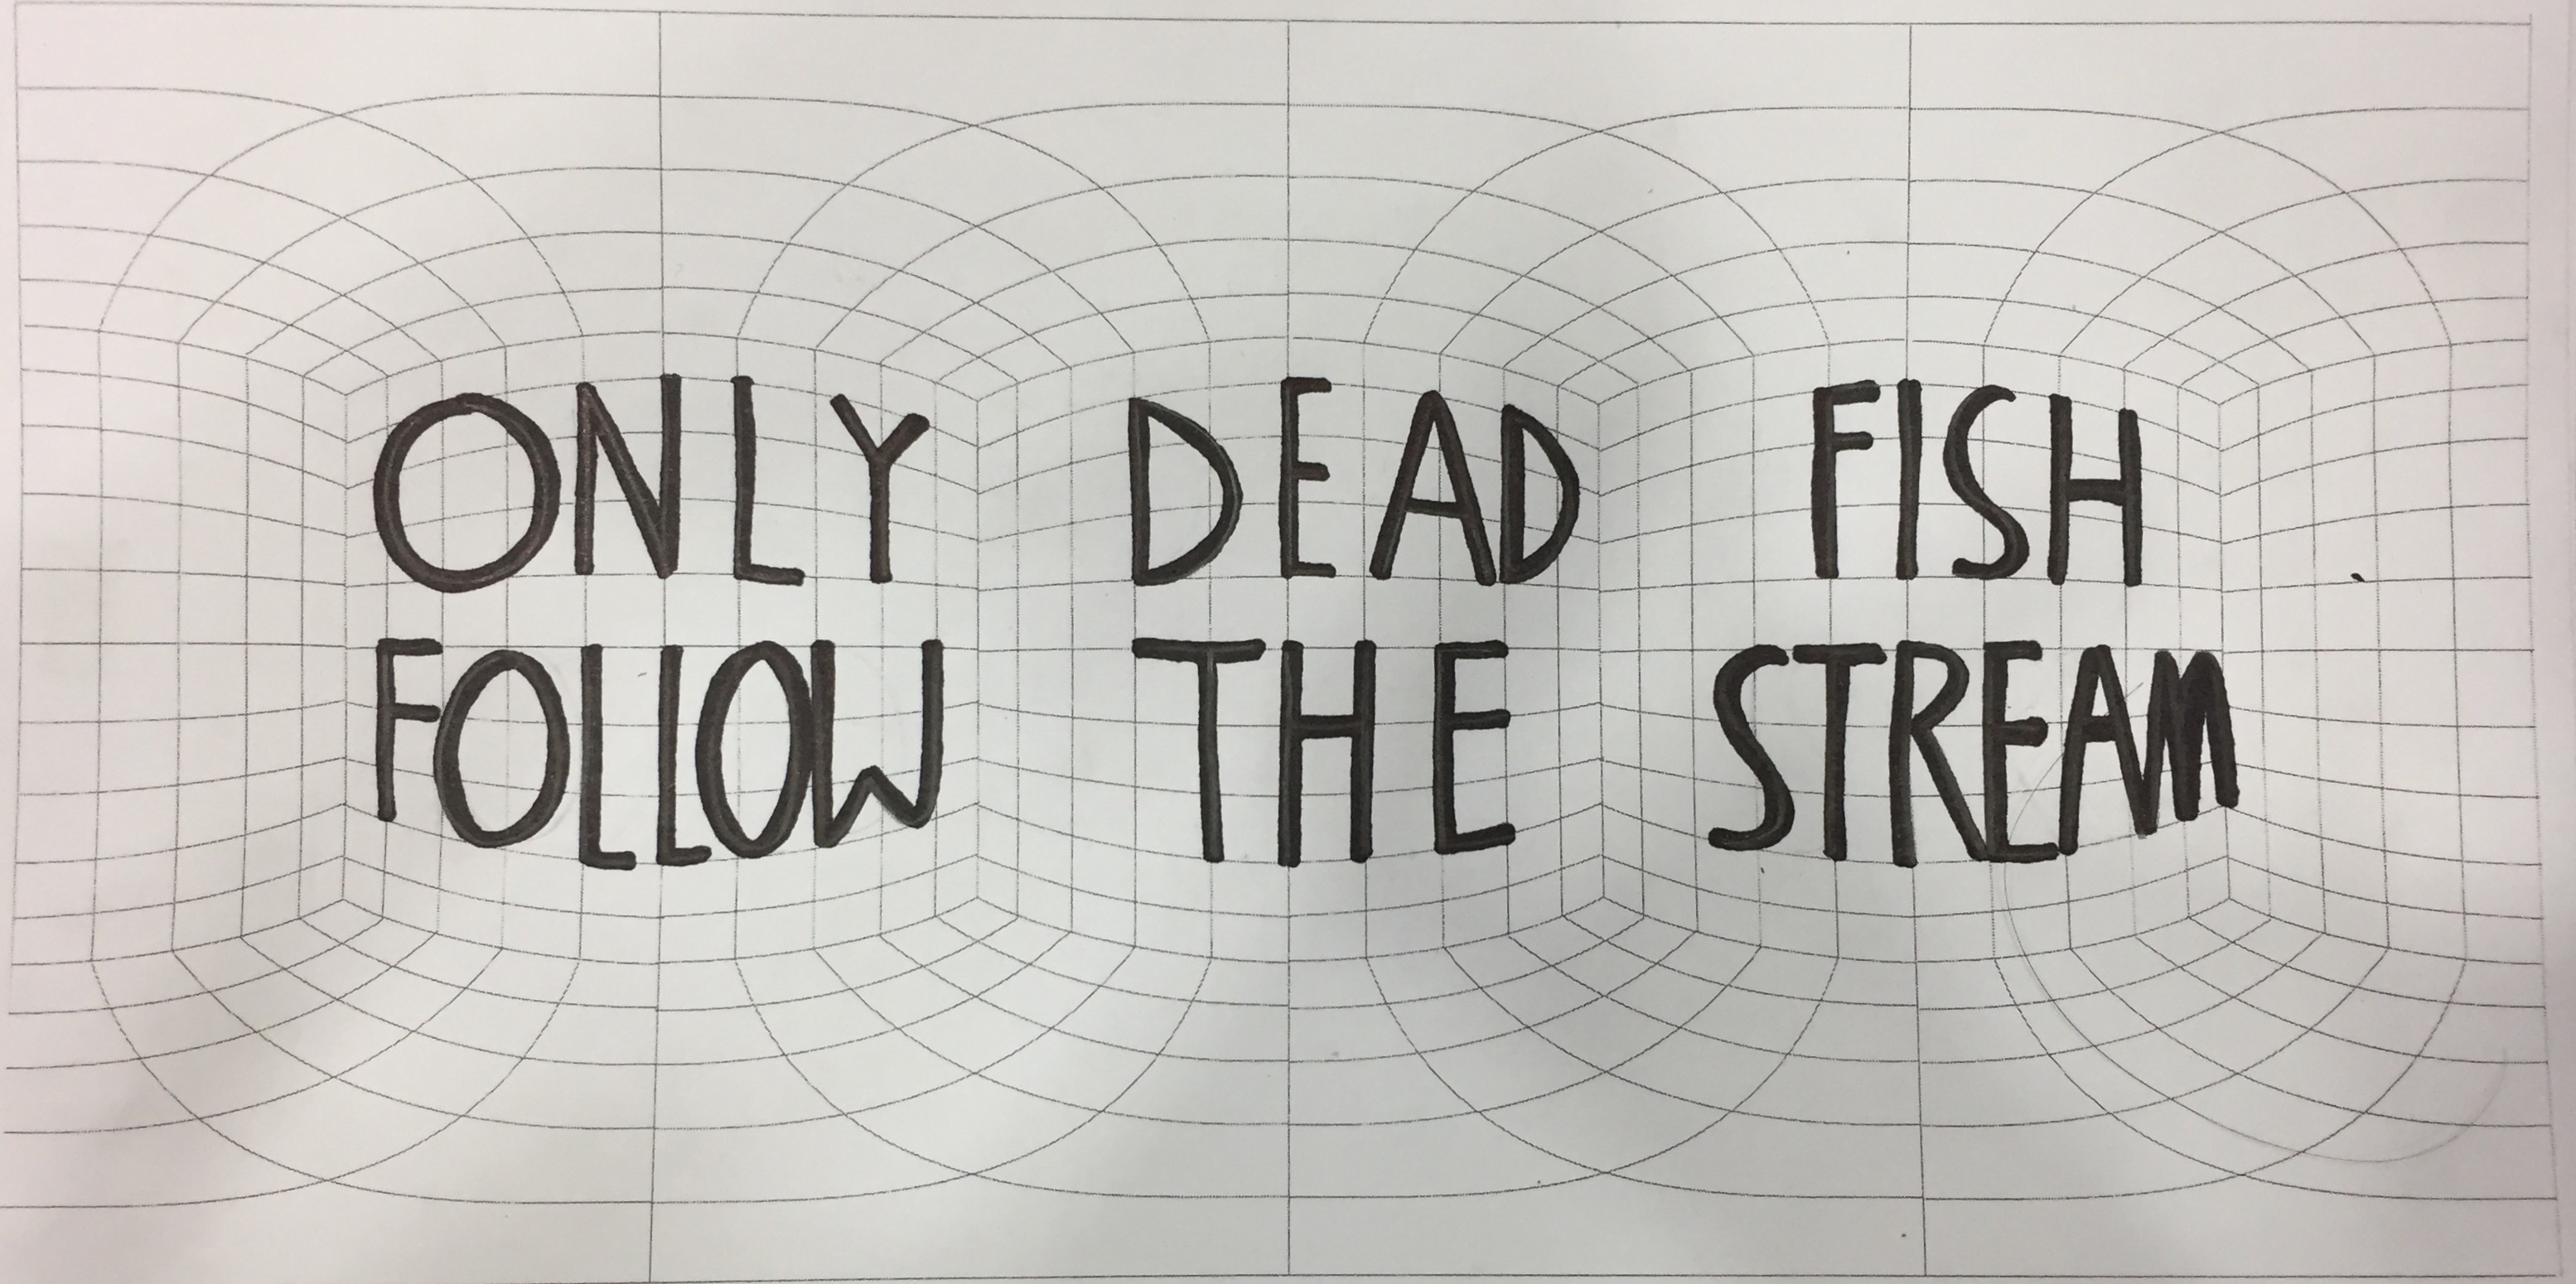 ONLY DEAD FISH
FOLLOW THE STREAM